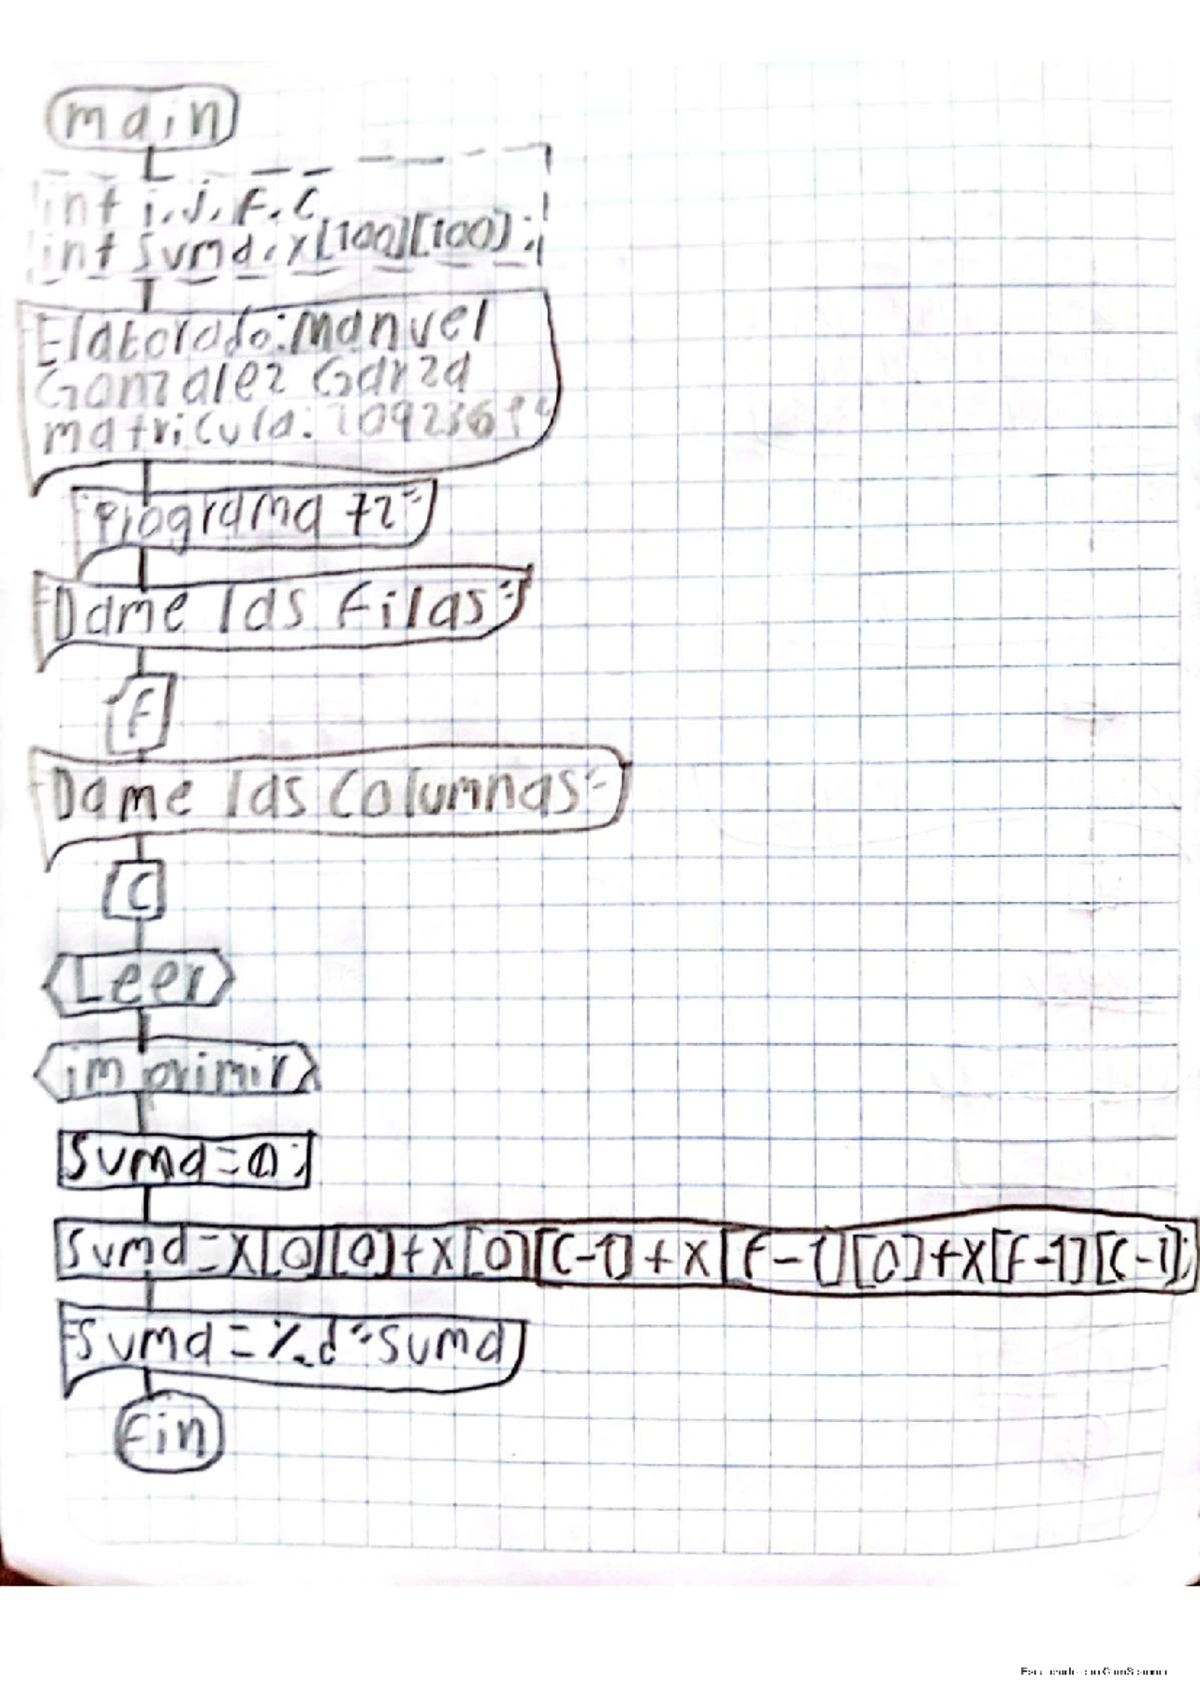 main
int i,j,F,C
int Suma,x[100][100];
"Elaborado:manuel
Gonzalez Garza
matricula:
"Programa 72"
"Dame las Filas"
F
"Dame las Columnas"
C
Leer
imprimir
Suma=0;
Suma=X[0][0]+X[0][C-1]+X[F-1][0]+X[F-1][C-1];
"Suma=%d"suma
Fin